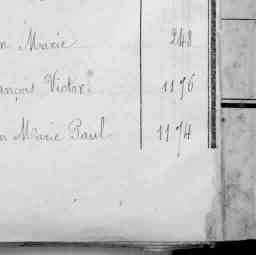 n Marie 248
ançois Victor 1176
n Marie Paul 1174